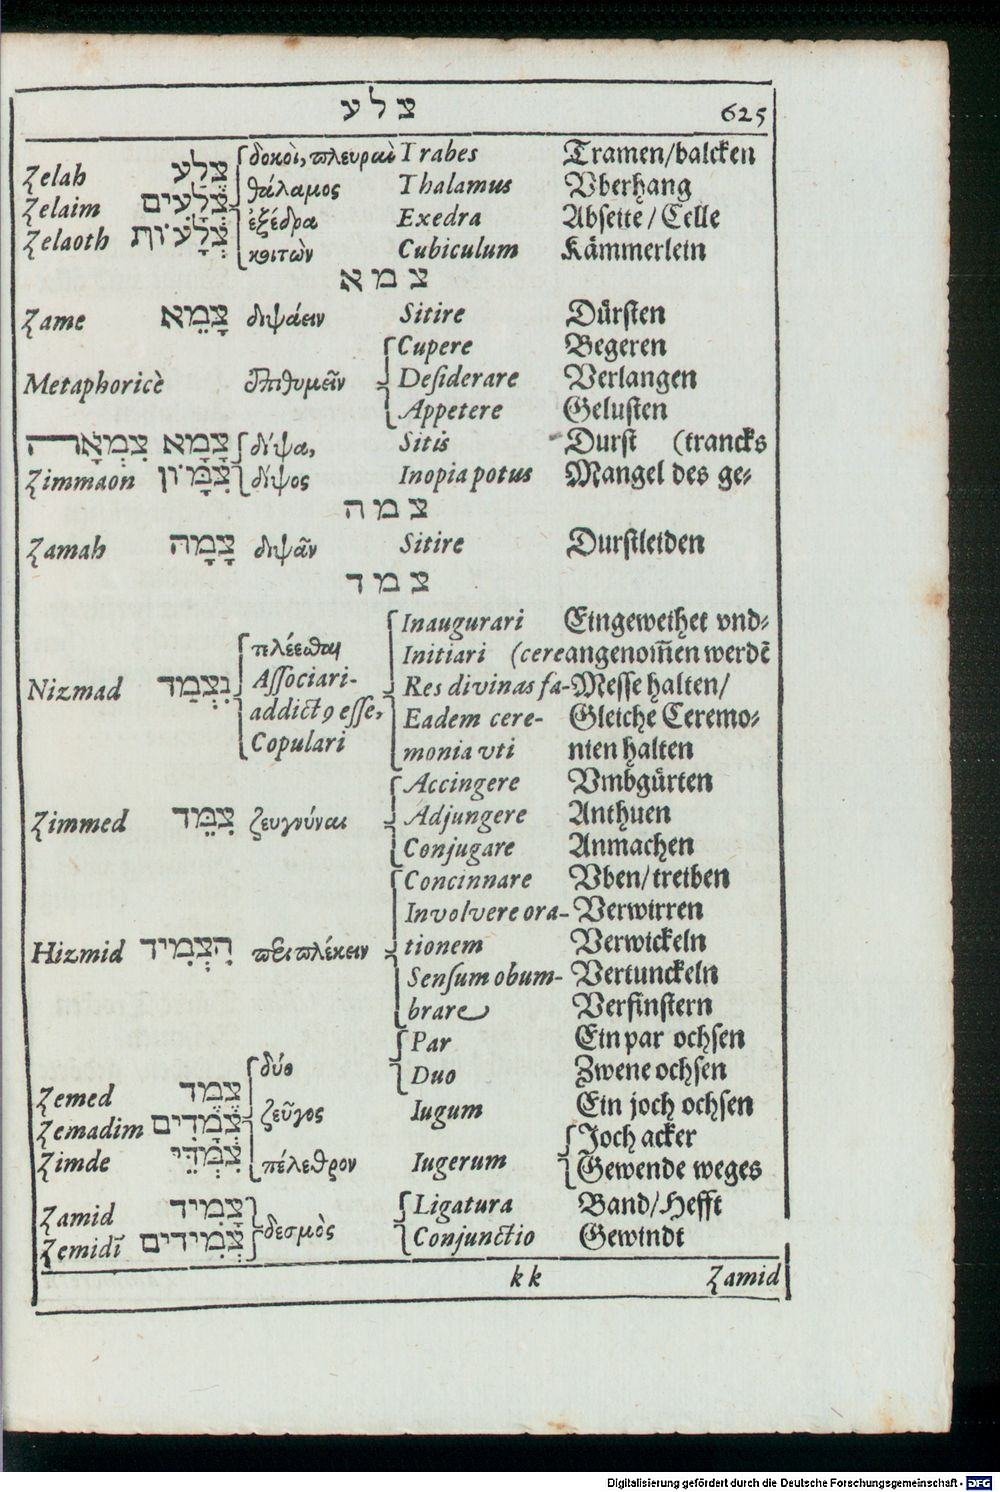 צ ל ע 625
Zelah צֶלַע δοκοὶ, πλευραὶ Trabes Tramen/balcken
Zelaim צְלָעִים θάλαμος Thalamus Vberhang
Zelaoth צְלָעֹות ἐξέδρα Exedra Abseite/Celle
κοιτὼν Cubiculum Kämmerlein
צ מ א
Zame צָמֵא διψάειν Sitire Dürsten
Cupere Begeren
Metaphoricè ἐπιθυμεῖν Desiderare Verlangen
Appetere Gelusten
צָמָא צִמְאָה δίψα, Sitis Durst (trancks
Zimmaon צִמָּאֹון δίψος Inopia potus Mangel des ge-
צ מ ה
Zamah צָמָה διψᾶν Sitire Durstleiden
צ מ ד
Inaugurari Eingeweihet vnd-
τελέεσθαι Initiari (cere angenom̄en werdē
Nizmad נִצְמַד Associari- Res divinas fa- Messe halten/
addictꝰ esse, Eadem cere- Gleiche Ceremo-
Copulari monia vti nien halten
Accingere Vmbgürten
Zimmed צִמֵּד ζευγνύναι Adjungere Anthuen
Conjugare Anmachen
Concinnare Vben/treiben
Involvere ora- Verwirren
Hizmid הִצְמִיד περιπλέκειν tionem Verwickeln
Sensum obum- Vertunckeln
brare Verfinstern
Par Ein par ochsen
δύο Duo Zwene ochsen
Zemed צֶמֶד ζεῦγος Iugum Ein joch ochsen
Zemadim צְמָדִים Joch acker
Zimde צִמְדֵּי πέλεθρον Iugerum Gewende weges
Zamid צָמִיד δεσμὸς Ligatura Band/Hefft
Zemidī צְמִידִים Conjunctio Gewindt
k k Zamid
Digitalisierung gefördert durch die Deutsche Forschungsgemeinschaft - DFG